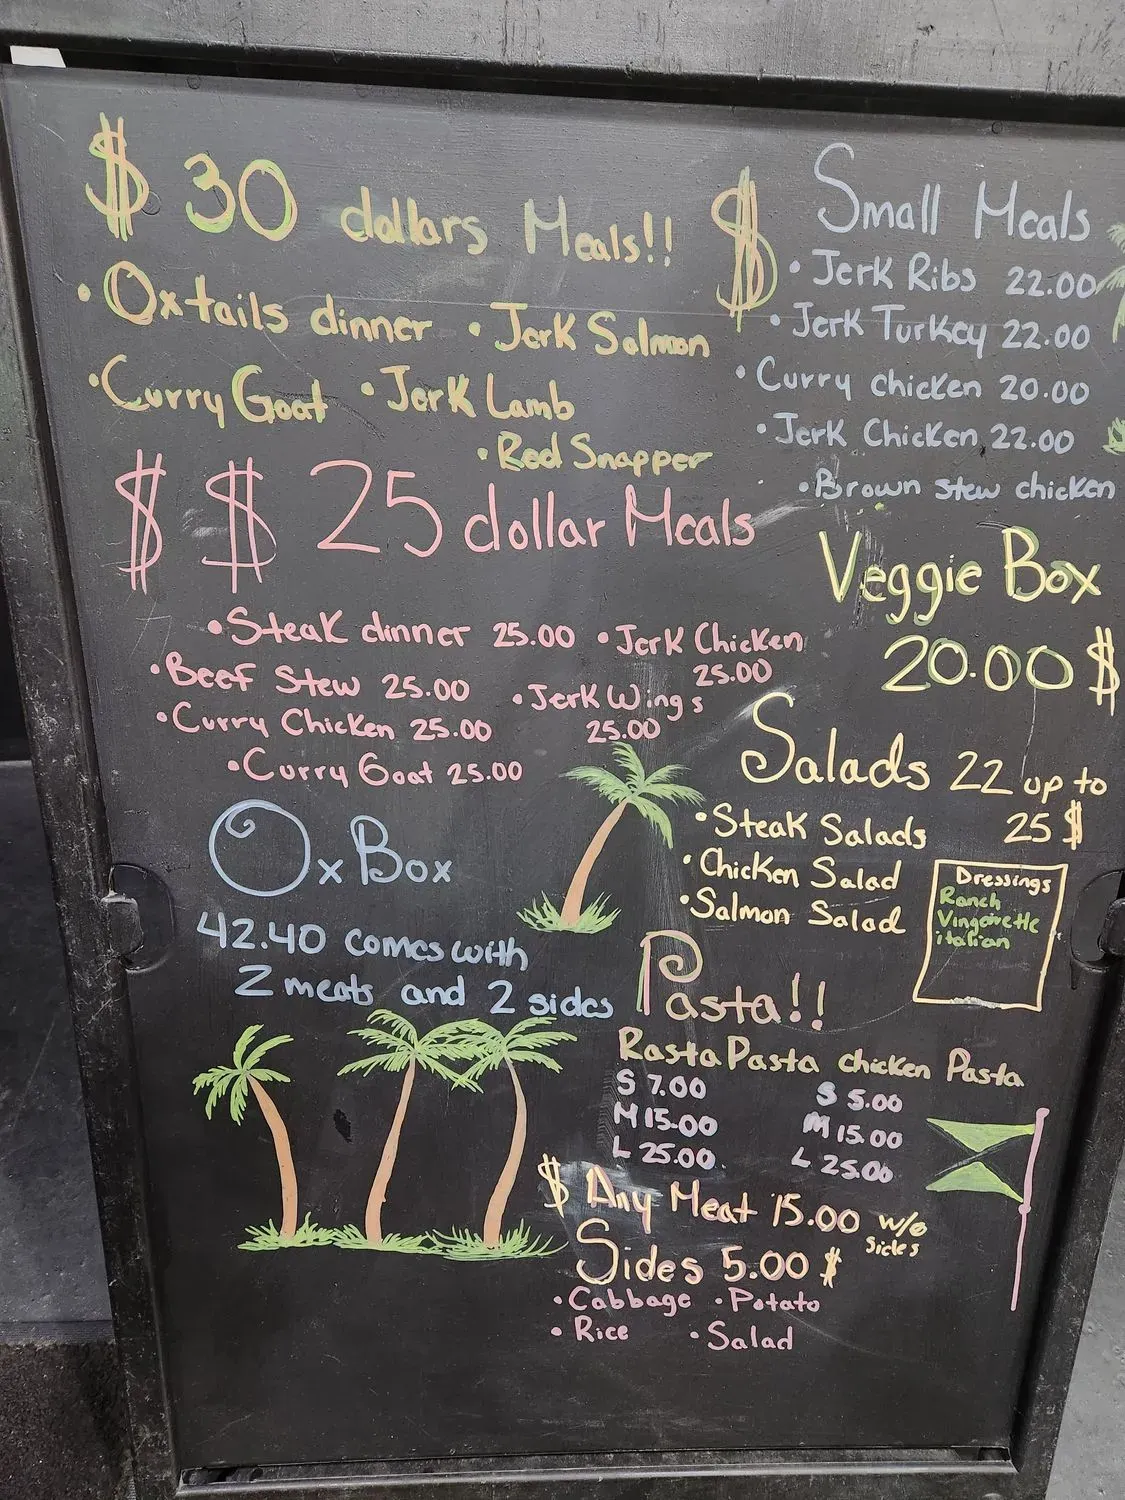 $ 30 dollars Meals!!
• Oxtails dinner • Jerk Salmon
• Curry Goat • Jerk Lamb
• Red Snapper
$ $ 25 dollar Meals
• Steak dinner 25.00 • Jerk Chicken
25.00
• Beef Stew 25.00 • Jerk Wings
25.00
• Curry Chicken 25.00
• Curry Goat 25.00
Ox Box
42.40 comes with
2 meats and 2 sides
$ Small Meals
• Jerk Ribs 22.00
• Jerk Turkey 22.00
• Curry chicken 20.00
• Jerk Chicken 22.00
• Brown stew chicken
Veggie Box
20.00 $
Salads 22 up to
25 $
• Steak Salads
• Chicken Salad
• Salmon Salad
Dressings
Ranch
Vingairette
italian
Pasta!!
Rasta Pasta chicken Pasta
S 7.00 S 5.00
M 15.00 M 15.00
L 25.00 L 25.00
$ Any Meat 15.00 w/o
Sides
Sides 5.00 $
• Cabbage • Potato
• Rice • Salad